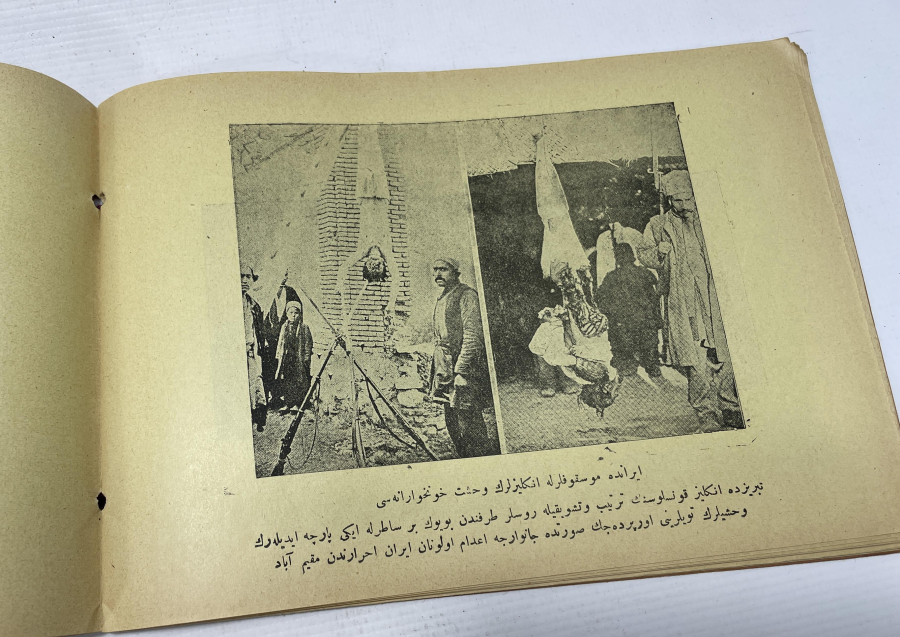 ایرانده موسقوفلرله انکلیزلرك وحشت خونخوارانه‌سی
تبریزده انکلیز قونسلوسنك ترتیب وتشویقیله روسلر طرفندن بویوك بر ساطرله ایکی پارچه ایدیله‌رك
وحشیلرك تویلرینی اورپرده‌جك صورتده جانوارجه اعدام اولونان ایران احرارندن مقیم آباد